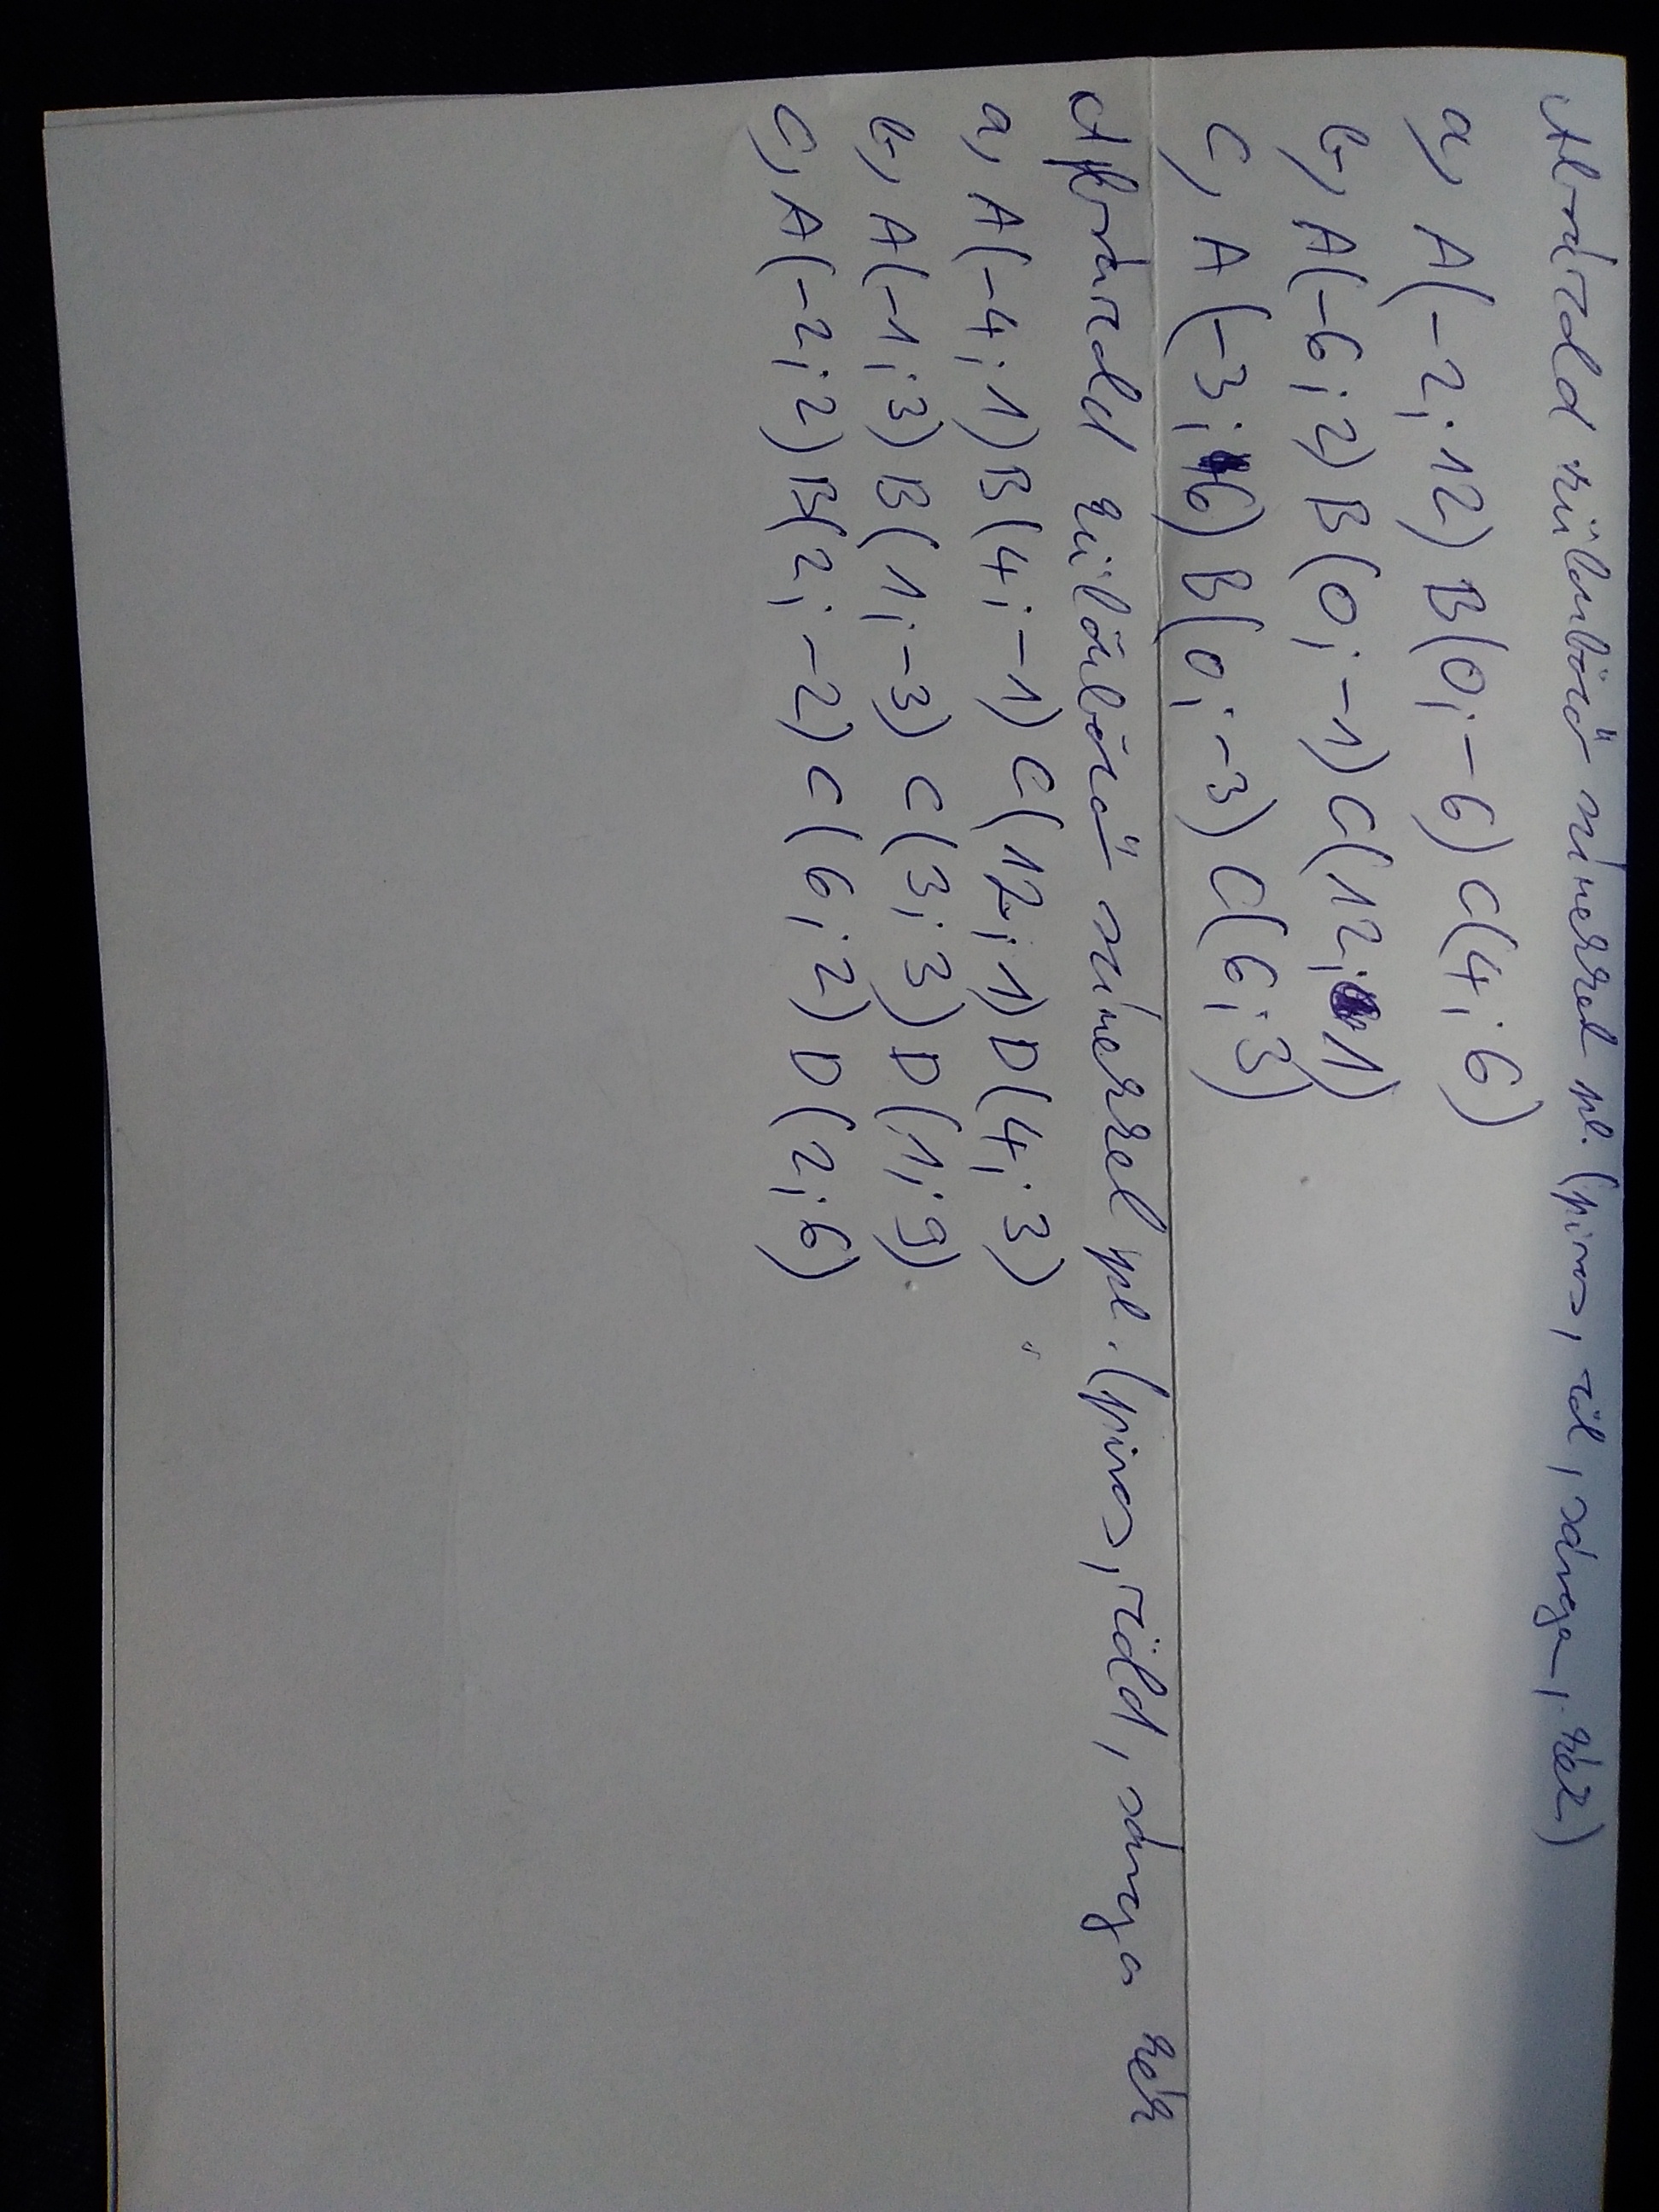 Ábrázold különböző színekkel pl. (piros, zöl, sárga, kék)
a, A(-2; 12) B(0; -6) C(4; 6)
b, A(-6; 2) B(0; -1) C(12; 1)
c, A(-3; 6) B(0; -3) C(6; 3)
Ábrázold különböző színekkel pl. (piros, zöld, sárga kék
a, A(-4; 1) B(4; -1) C(12; 1) D(4; 3)
b, A(-1; 3) B(1; -3) C(3; 3) D(1; 9)
c, A(-2; 2) B(2; -2) C(6; 2) D(2; 6)